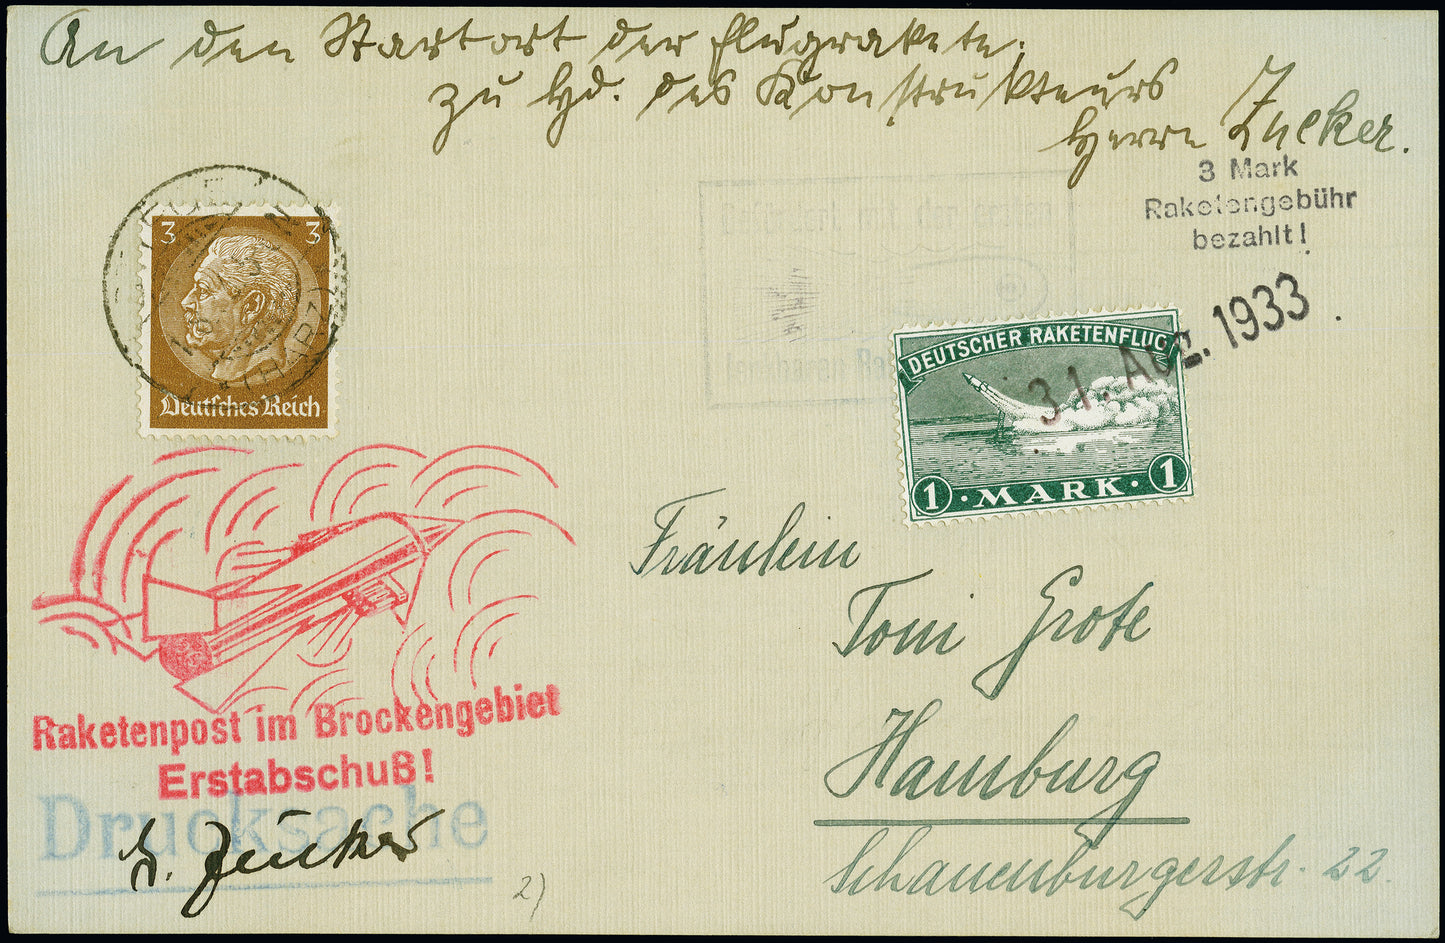 An den Startort der Flugrakete.
zu Hd. des Konstrukteurs
Herrn Zucker.
3 Mark
Raketengebühr
bezahlt!
3 3
(HARZ)
Deutsches Reich
31. AUG. 1933
DEUTSCHER RAKETENFLUG
1 · MARK · 1
Fräulein
Toni Grote
Hamburg
Schauenburgerstr. 22.
Raketenpost im Brockengebiet
Erstabschuß!
Drucksache
G. Zucker
2)